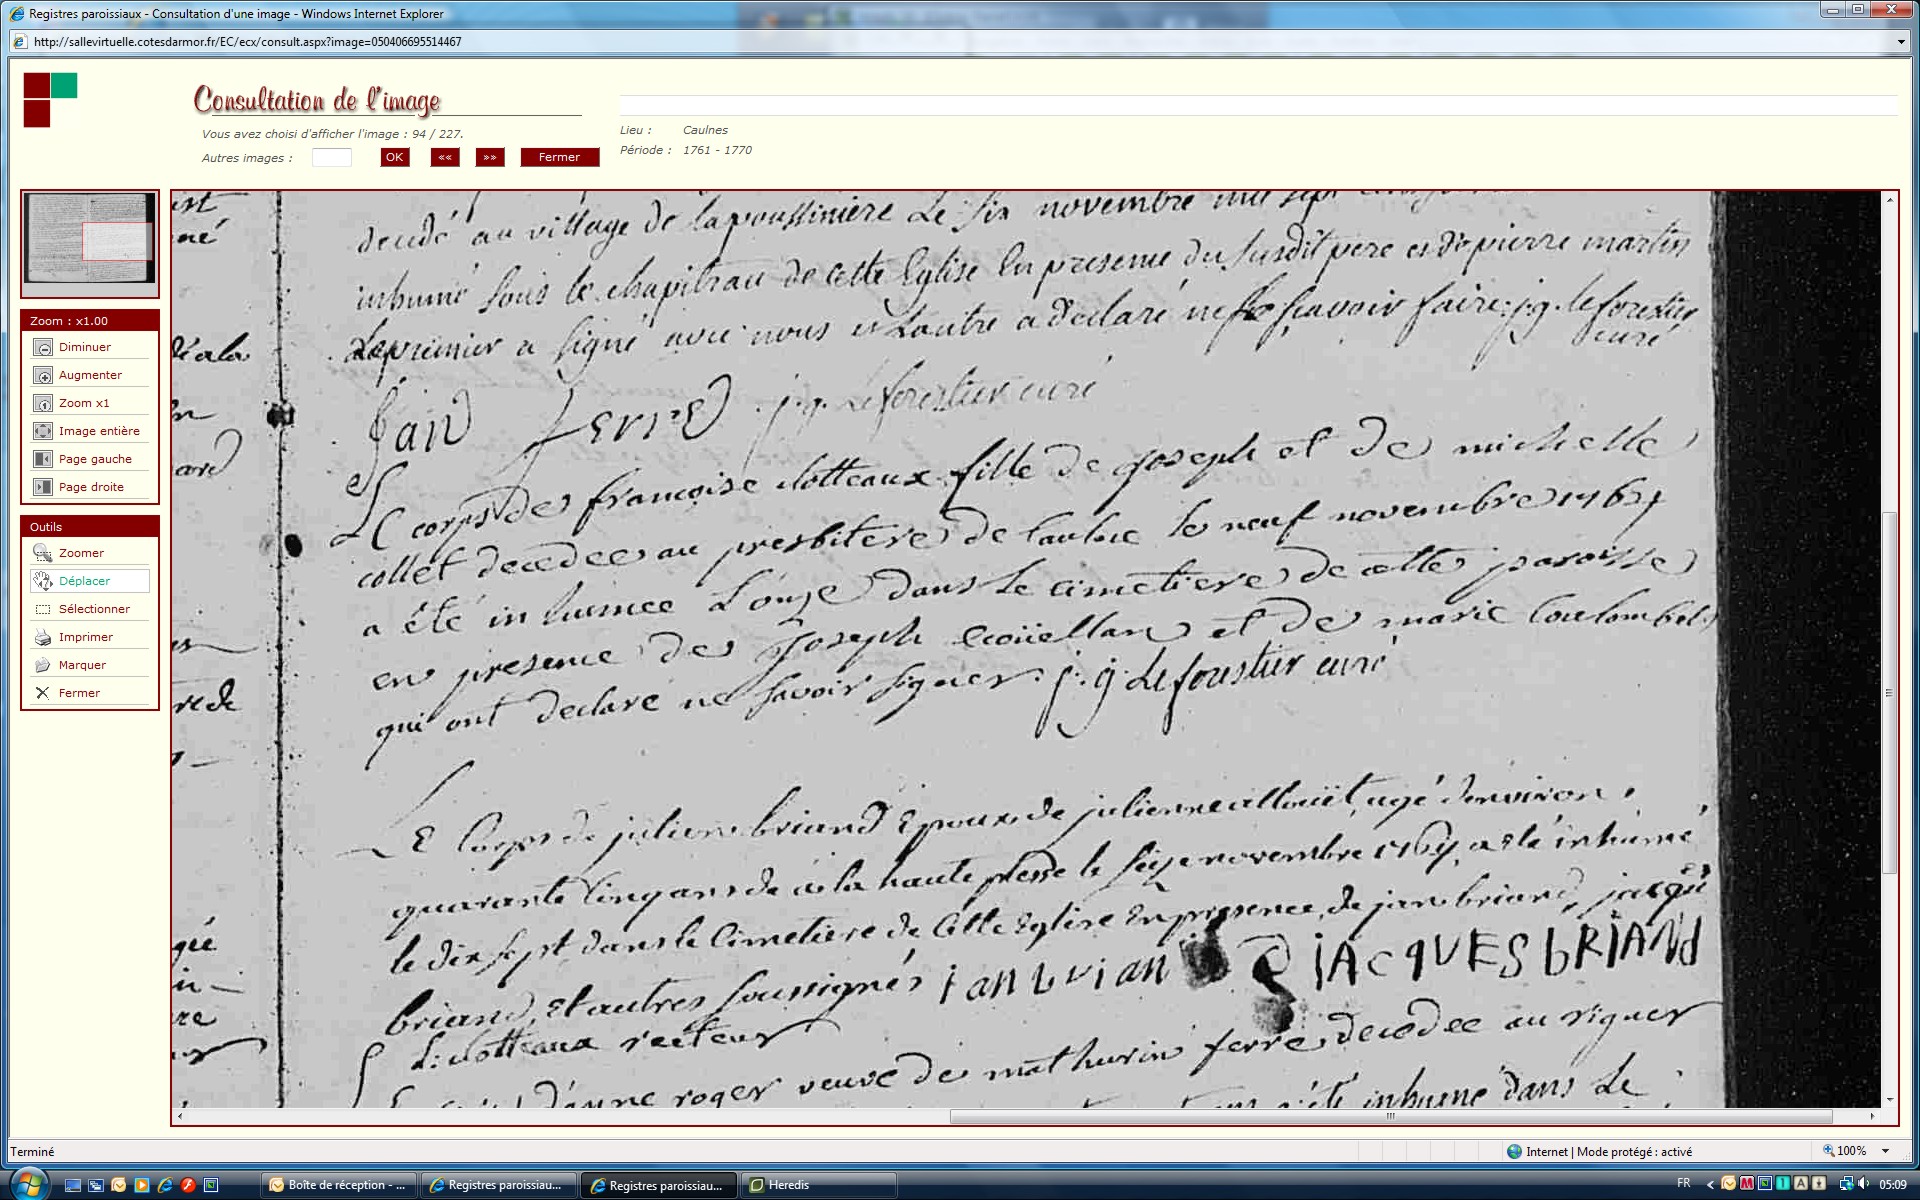 Registres paroissiaux - Consultation d'une image - Windows Internet Explorer
http://sallevirtuelle.cotesdarmor.fr/EC/ecx/consult.aspx?image=050406695514467
Consultation de l'image
Vous avez choisi d'afficher l'image : 94 / 227.
Autres images :
OK
««
»»
Fermer
Lieu : Caulnes
Période : 1761 - 1770
Zoom : x1.00
Diminuer
Augmenter
Zoom x1
Image entière
Page gauche
Page droite
Outils
Zoomer
Déplacer
Sélectionner
Imprimer
Marquer
Fermer
decedé au village de lapoussiniere Le six novembre mil sept
inhumé sous le chapitrau de cette Eglise En presence du susdit pere et de pierre martin
Lepremier a signé avec nous et Lautre a declaré ne sçavoir faire j.g. leforestier
curé
jan ferre j.g. Leforestier curé
Le corps de francoise clotteaux fille de joseph et de michelle
collet decedee au presbitere de le neuf novembre 1764
a été inhumee L'onze dans Le cimetiere de cette paroisse
en presence de joseph ecoüellan et de marie Coulombel
qui ont declaré ne savoir signer. j. g. Leforestier curé
LE Corps de julien briand Epoux de julienne alloüet, agé d'environ
quarante Cinq ans decede a la haute presse le seize novembre 1764, a eté inhumé
le dix sept dans le Cimetiere de Cette Eglise En presence de jan briand, jacque
briand, Et autres soussignés jan brian JACQUES BRIAND
L: clotteaux recteur
d'anne roger veuve de mathurin ferre decedee au riguer
a été inhumé dans Le
Terminé
Internet | Mode protégé : activé
100%
Boîte de réception - ...
Registres paroissiau...
Registres paroissiau...
Heredis
FR
05:09